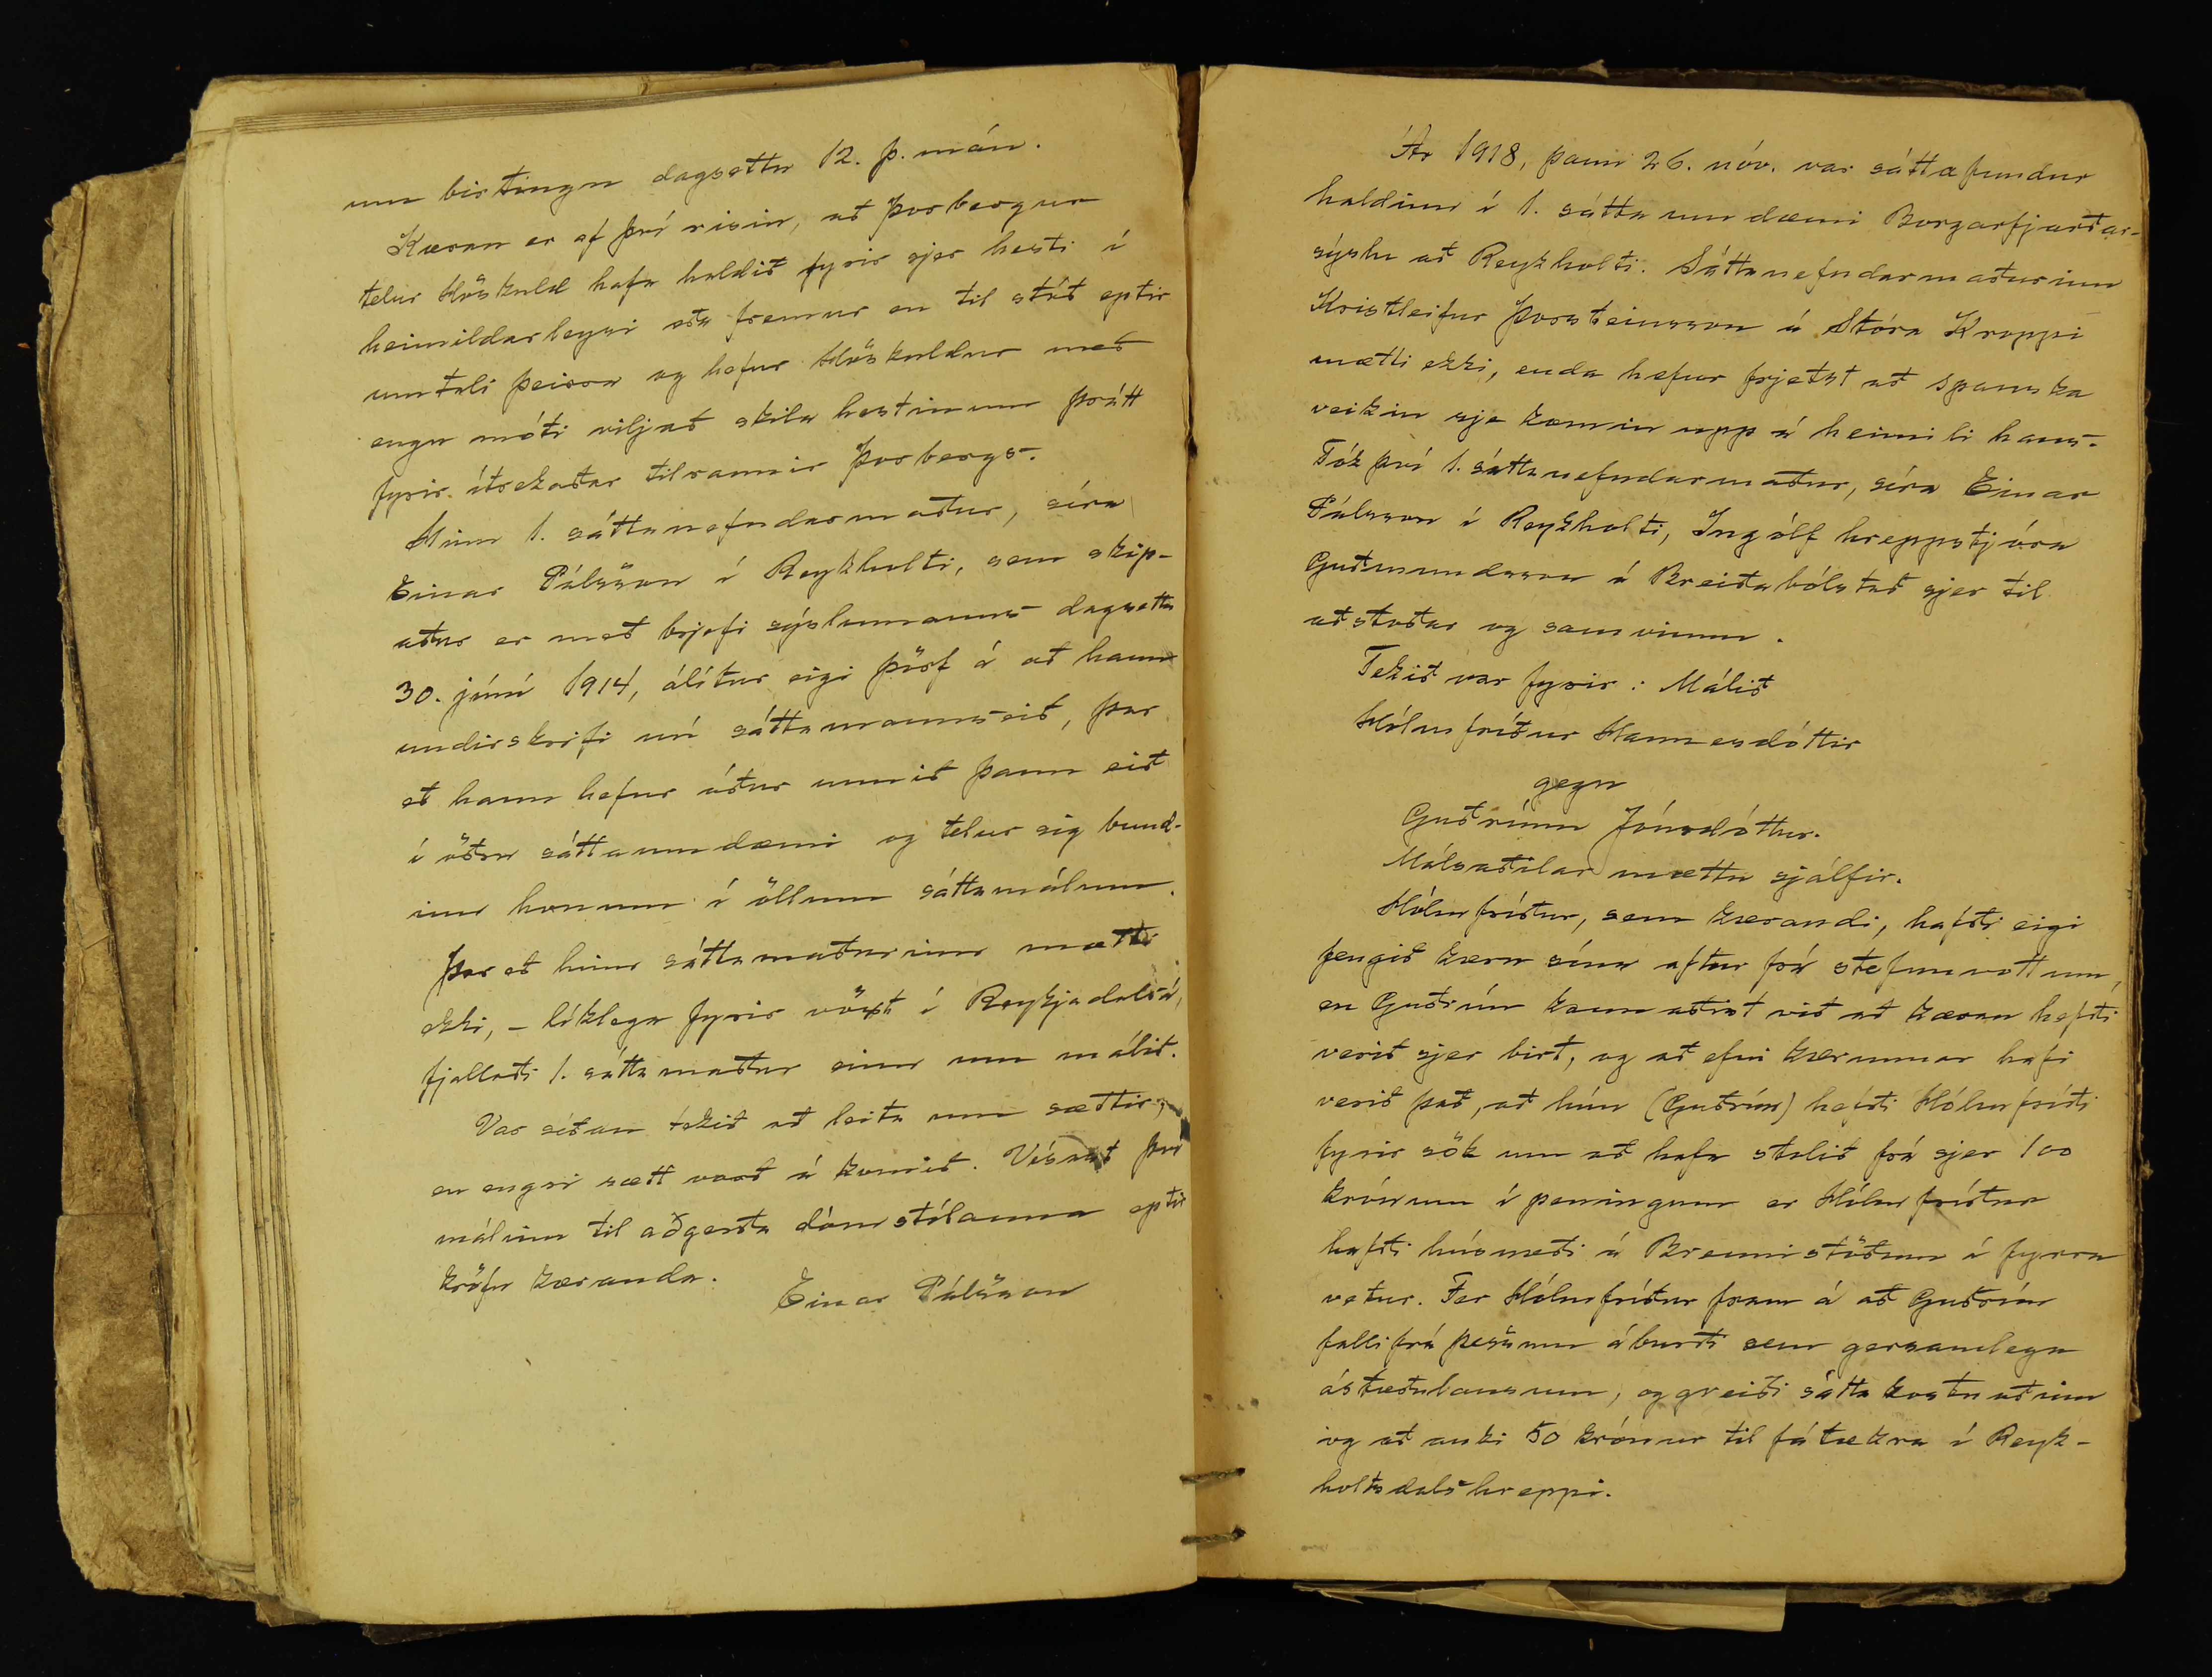 um birtingu dagsettu 12. þ. mán.
Kæran er af því risin, að Þorbergur
telur Höskuld hafa haldið fyrir sjer hesti í
heimildarleysi eða fremur en til stóð eptir
umtali þeirra og hefur Höskuldur með
engu móti viljað skila hestinum þrátt
fyrir ítrekaðar tilraunir Þorbergs.
Hinn 1. sáttanefndarmaður, síra
Einar Pálsson í Reykholti, sem skip-
aður er með brjefi sýslumanns dagsettu
30. júní 1914, álítur eigi þörf á að hann
undirskrifi nú sáttamannseið, þar
eð hann hefur áður unnið þann eið
í öðru sáttaumdæmi og telur sig bund-
inn honum í öllum sáttamálum.
Þar eð hinn sáttamaðurinn mætti
ekki, - líklega fyrir vöxt í Reykjadalsá,
fjallaði 1. sáttamaður einn um málið.
Var síðan tekið að leita um sættir,
en engri sætt varð á komið. Vísast því
málinu til aðgerða dómstólanna eptir
kröfu kæranda.
Einar Pálsson
Ár 1918, þann 26. nóv. var sáttafundur
haldinn í 1. sátta umdæmi Borgarfjarðar-
sýslu að Reykholti. Sáttanefndarmaðurinn
Kristleifur Þorsteinsson á Stóra Kroppi
mætti ekki, enda hefur frjetst að spanska
veikin sje komin upp á heimili hans.
Tók því 1. sáttanefndarmaður, síra Einar
Pálsson í Reykholti, Ingólf hreppstjóra
Guðmundsson á Breiðabólstað sjer til
aðstoðar og samvinnu.
Tekið var fyrir: Málið
Hólmfríður Hannesdóttir
gegn
Guðrúnu Jónsdóttur.
Málsaðilar mættu sjálfir.
Hólmfríður, sem kærandi, hafði eigi
fengið kæru sína aftur frá stefnuvottum,
en Guðrún kannaðist við að kæran hefði
verið sjer birt, og að efni kærunnar hafi
verið það, að hún (Guðrún) hefði Hólmfríði
fyrir sök um að hafa stolið frá sjer 100
krónum í peningum er Hólmfríður
hafði húsnæði á Brennistöðum í fyrra
vetur. Fer Hólmfríður fram á að Guðrún
falli frá þessum áburði sem gersamlega
ástæðulausum, og greiði sátta kostnaðinn
og að auki 50 krónur til fátækra í Reyk-
holtsdalshreppi.